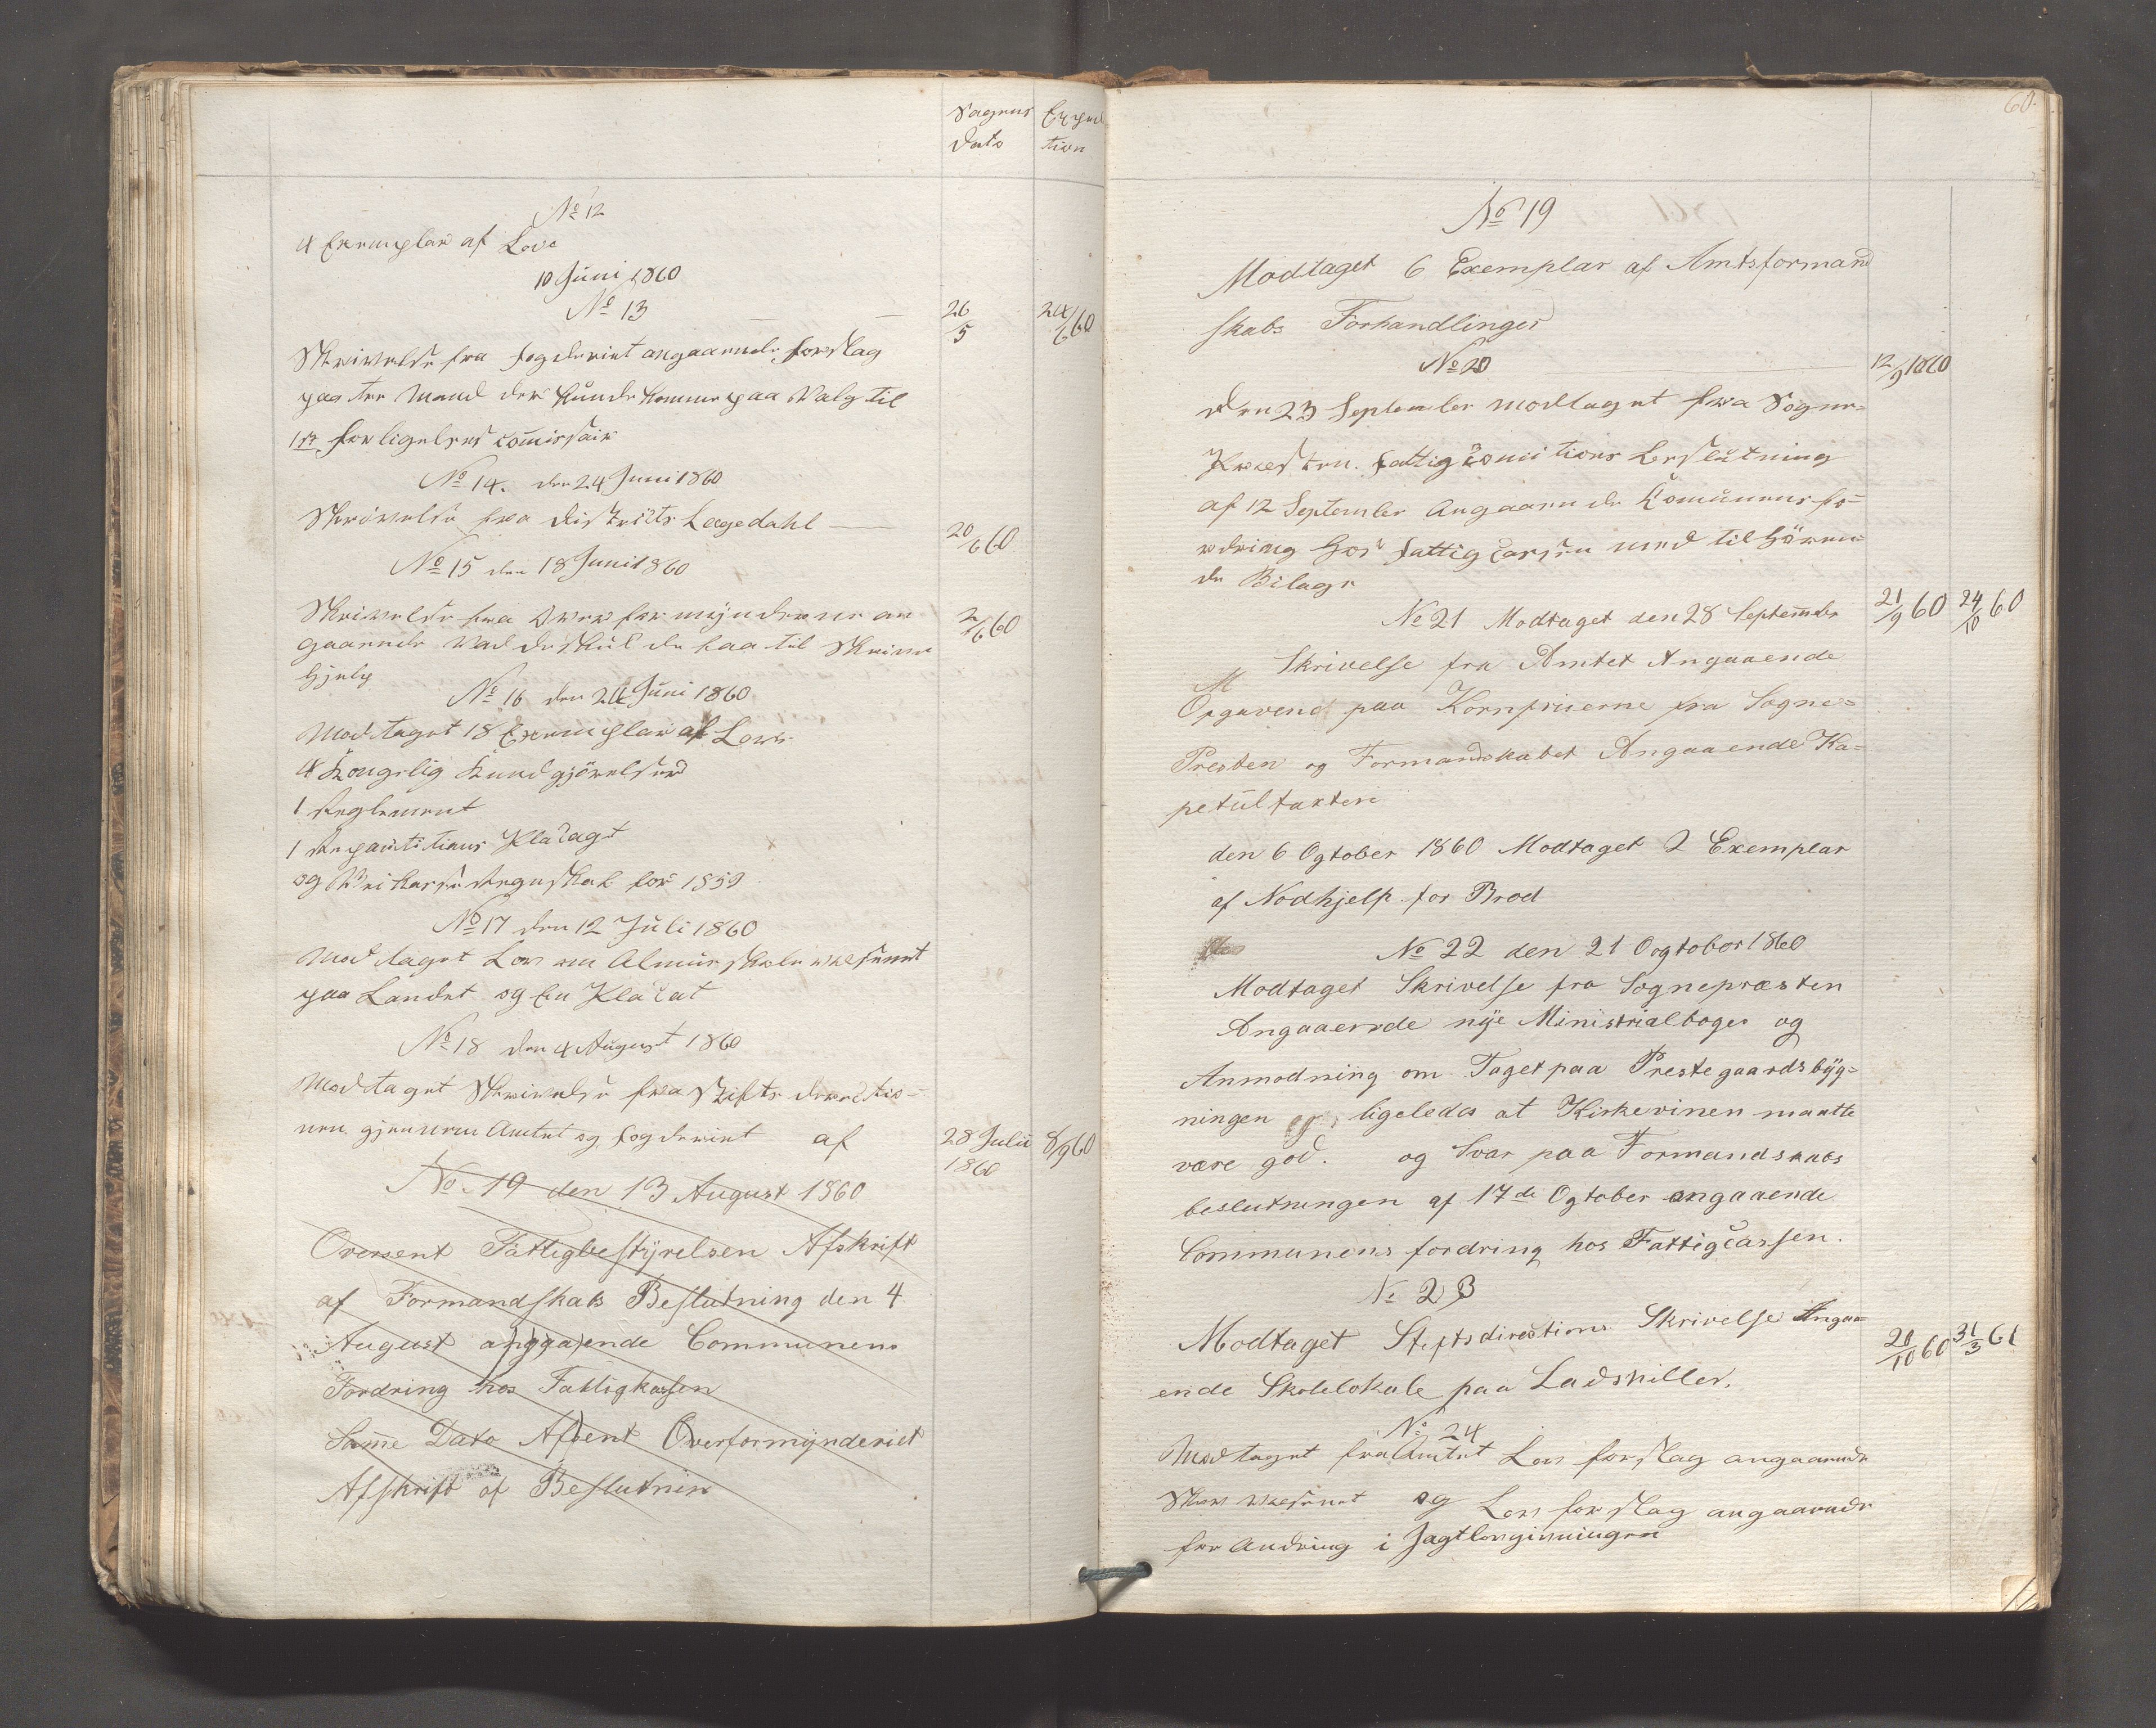 Sagens Dato
Expedition
No 12
4 Exemplar af Love
10 Juni 1860
No 13
26/5
24/6 60
Skrivelse fra fogderiet angaaende forslag
paa tre Mand der kunde komme paa Valg til
1st forligelses Commissair
No 14. den 24 Juni 1860
Skrivelse fra Districts Lægedahl
20/6 60
No 15 den 18 Juni 1860
Skrivelse fra Overformynderne an
gaaende Vad de skulde faa til Skriver
hjelp
2/6 60
No 16 den 24 Juni 1860
Modtaget 18 Exemplar af Love
4 Kongelig Kundgjörelser
1 Reglement
1 Repartitions Placagt
og Veikasse Regnskab for 1859
No 17 den 12 Juli 1860
Modtaget Lov om Almueskolevæsenet
paa Landet og En Placat
No 18 den 4 August 1860
Modtaget Skrivelse fra Stifts directio-
nen gjennem Amtet og fogderiet af
28 Julii 1860
8/9 60
No 19 den 13 August 1860
Oversent Fattigbestÿrelsen Afskrift
af Formandskabs Beslutning den 4
August angaaende Communens
Fordring hos Fattigkassen
Samme Dato Afsent Overformÿnderiet
Afskrift af Beslutnin
60.
No 19
Modtaget 6 Exemplar af Amtsformand
skabs Forhandlinger
No 20
12/9 1860
den 23 September modtaget fra Sogne-
Præsten. fattig Comitions Beslutning
af 12 September Angaaende Komunens fo-
rdring hos fattig Cassen med tilhören
de Bilage
No 21 Modtaget den 28 September
21/9 60
24/10 60
Skrivelse fra Amtet Angaaende
Opgavend paa Kornpriserne fra Sogne-
Presten og Formandskabet Angaaende Ka-
petültaxten
den 6 Ogtober 1860 Modtaget 2 Exemplar
af Nodhjelp for Brod
No 22 den 21 Oogtobor 1860
Modtaget Skrivelse fra Sognepræsten
Angaaende nÿe Ministrialboger og
Anmodning om Taget paa Prestegaardsbÿg-
ningen og ligeledes at Kirkevinen maatte
være god. og Svar paa Formandskabs
beslutningen af 17de Ogtober angaaende
Communens fordring hos Fattigcassen.
No 23
Modtaget Stiftsdirections Skrivelse Angaa-
ende Skolelokale paa Ladskiller.
20/10 60
31/3 61
No 24
Modtaget fra Amtet Lov forslag angaaende
Skov væsenet og Lov forslag angaaende
for Andring i Jagtlovgivningen